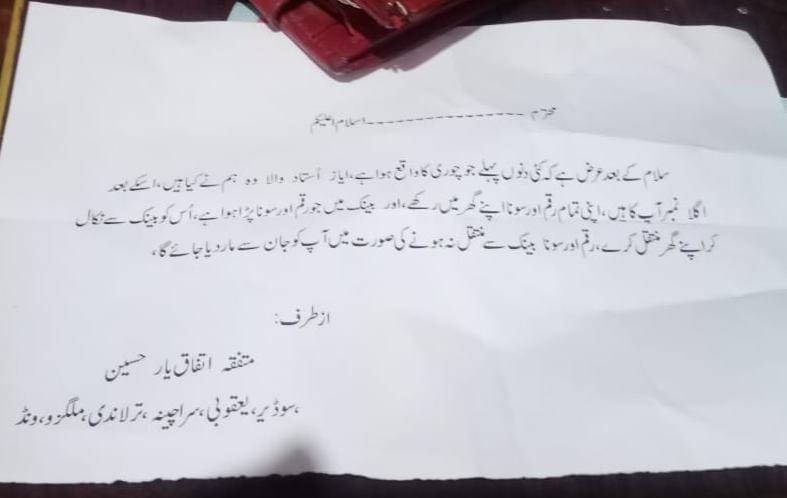 محترم ------------------ اسلام اعلیکم
سلام کے بعد عرض ہے کہ کئی دنوں پہلے جو چوری کا واقع ہوا ہے، ایاز اُستاد والا وہ ہم نے کیا ہیں، اسکے بعد
اگلا نمبر آپ کا ہیں، اپنی تمام رقم اور سونا اپنے گھر میں رکھے، اور بینک میں جو رقم اور سونا پڑا ہوا ہے، اُس کو بینک سے نکال
کر اپنے گھر منتقل کرے، رقم اور سونا بینک سے منتقل نہ ہونے کی صورت میں آپ کو جان سے مار دیا جائے گا،
از طرف:
متفقہ اتفاق یار حسین
،سوڈیر، یعقوبی، سراچینہ، ترلاندی، ملگزو، ونڈ